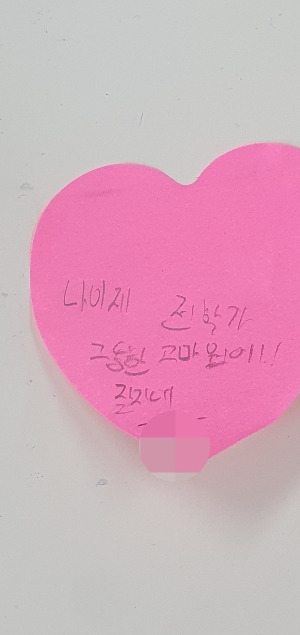 나이제 전학가
그동안 고마웠어!!
잘지내